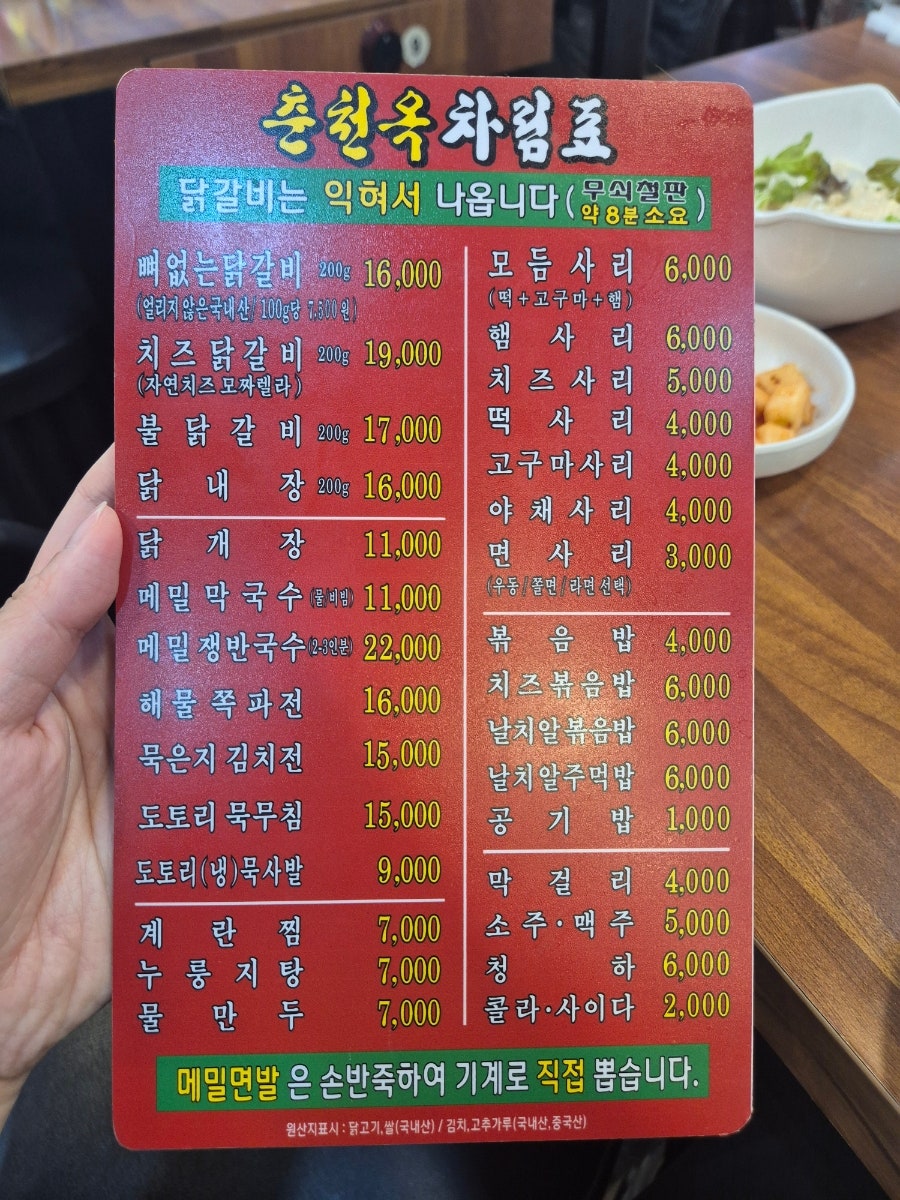 춘천옥 차림표
닭갈비는 익혀서 나옵니다 (무쇠철판 약 8분 소요)
뼈없는닭갈비 200g 16,000
(얼리지 않은 국내산/ 100g당 7,500원)
치즈닭갈비 200g 19,000
(자연치즈 모짜렐라)
불닭갈비 200g 17,000
닭내장 200g 16,000
닭개장 11,000
메밀막국수(물/비빔) 11,000
메밀쟁반국수(2-3인분) 22,000
해물쪽파전 16,000
묵은지 김치전 15,000
도토리 묵무침 15,000
도토리(냉)묵사발 9,000
계란찜 7,000
누룽지탕 7,000
물만두 7,000
모듬사리 6,000
(떡+고구마+햄)
햄사리 6,000
치즈사리 5,000
떡사리 4,000
고구마사리 4,000
야채사리 4,000
면사리 3,000
(우동/쫄면/라면 선택)
볶음밥 4,000
치즈볶음밥 6,000
날치알볶음밥 6,000
날치알주먹밥 6,000
공기밥 1,000
막걸리 4,000
소주·맥주 5,000
청하 6,000
콜라·사이다 2,000
메밀면발은 손반죽하여 기계로 직접 뽑습니다.
원산지표시 : 닭고기,쌀(국내산) / 김치,고추가루(국내산,중국산)